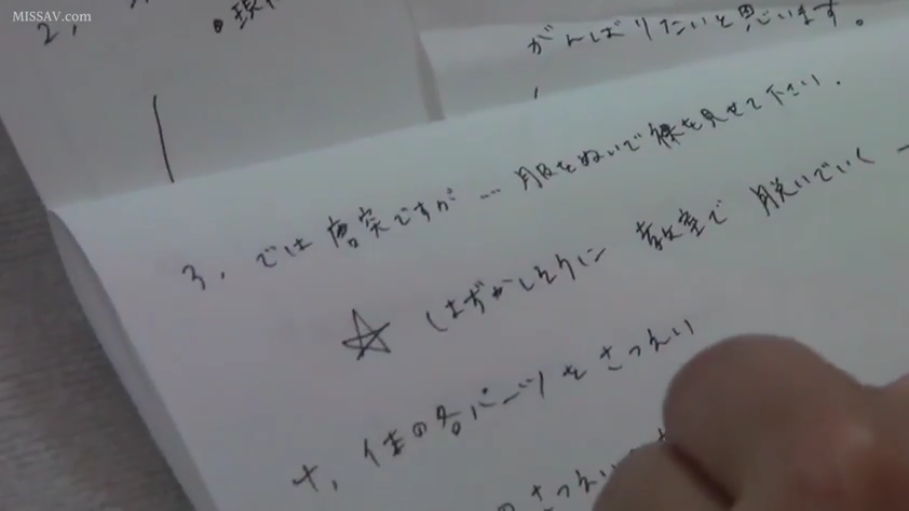 MISSAV.com
2,
がんばりたいと思います。
3, では唐突ですが… 服をぬいで裸を見せて下さい.
☆ はずかしそうに 教室で 脱いでいく
4, 体の各パーツをさつえい
のさつえい